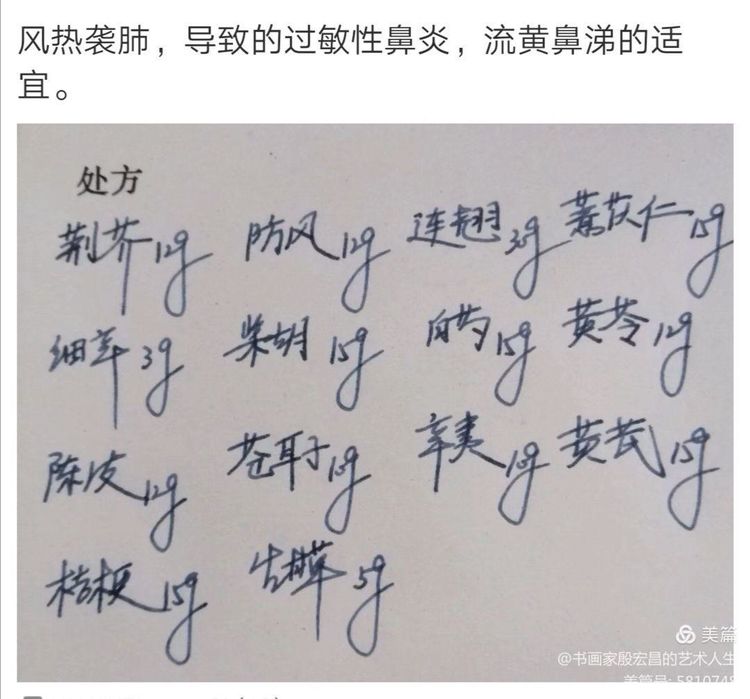 风热袭肺，导致的过敏性鼻炎，流黄鼻涕的适
宜。
处方
荆芥12g 防风12g 连翘35g 薏苡仁15g
细辛3g 柴胡15g 白芍15g 黄芩12g
陈皮12g 苍耳子13g 辛夷13g 黄芪15g
桔梗15g 生甘草5g
美篇
@书画家殷宏昌的艺术人生